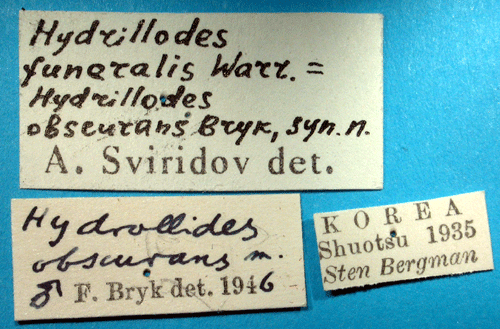 Hydrillodes
funeralis Warr. =
Hydrillodes
obscurans Bryk, syn. n.
A. Sviridov det.
Hydrollides
obscurans m.
♂ F. Bryk det. 1946
KOREA
Shuotsu 1935
Sten Bergman